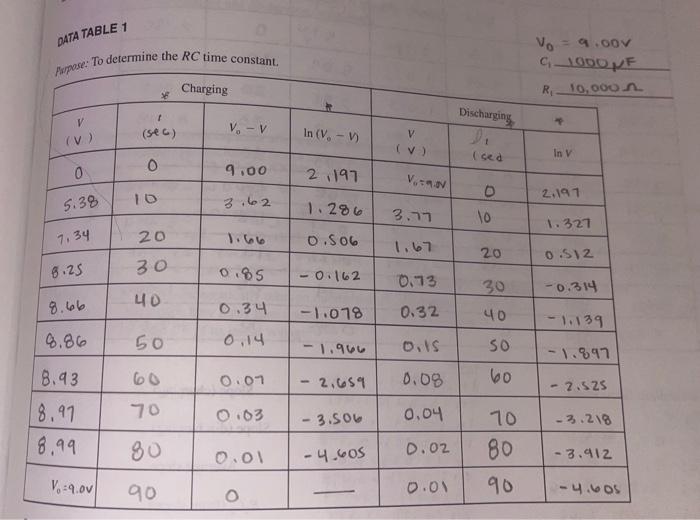 DATA TABLE 1
Purpose: To determine the RC time constant.
V₀ = 9.00V
C₁ 1000µF
R₁ 10,000Ω
* Charging * Discharging *
V (V) t (sec) V₀ − V ln (V₀ − V) V (V) t (sec) ln V
0 0 9.00 2.197 V₀=9.0V 0 2.197
5.38 10 3.62 1.286 3.77 10 1.327
7.34 20 1.66 0.506 1.67 20 0.512
8.25 30 0.85 -0.162 0.73 30 -0.314
8.66 40 0.34 -1.078 0.32 40 -1.139
8.86 50 0.14 -1.966 0.15 50 -1.897
8.93 60 0.07 -2.659 0.08 60 -2.525
8.97 70 0.03 -3.506 0.04 70 -3.218
8.99 80 0.01 -4.605 0.02 80 -3.912
V₀=9.0V 90 0 — 0.01 90 -4.605